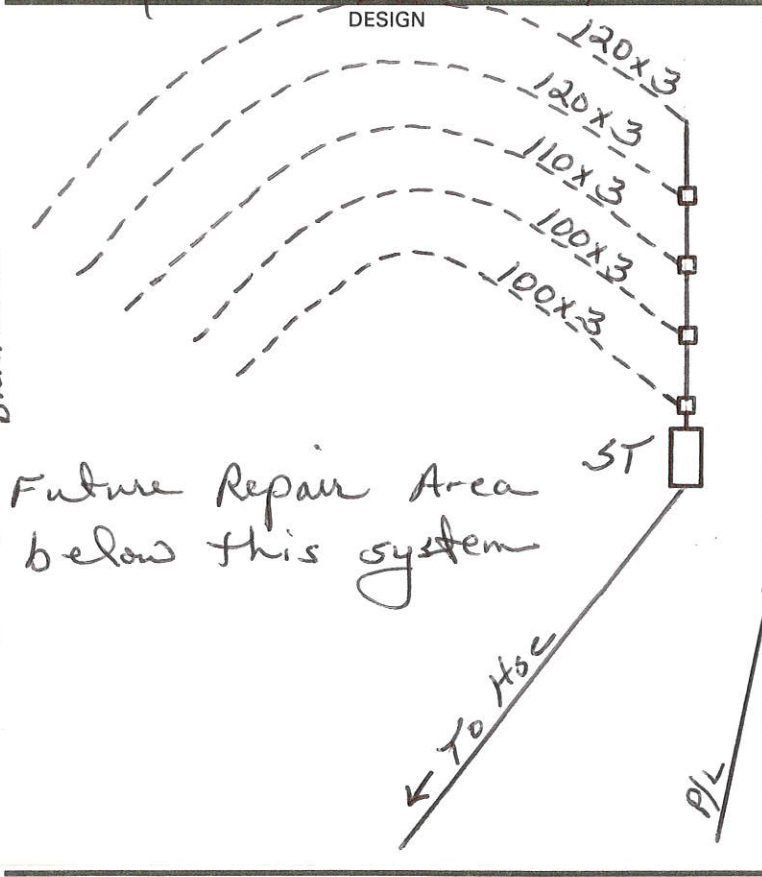 DESIGN
120x3
120x3
110x3
100x3
100x3
ST
Future Repair Area
below this system
To Hse
P/L